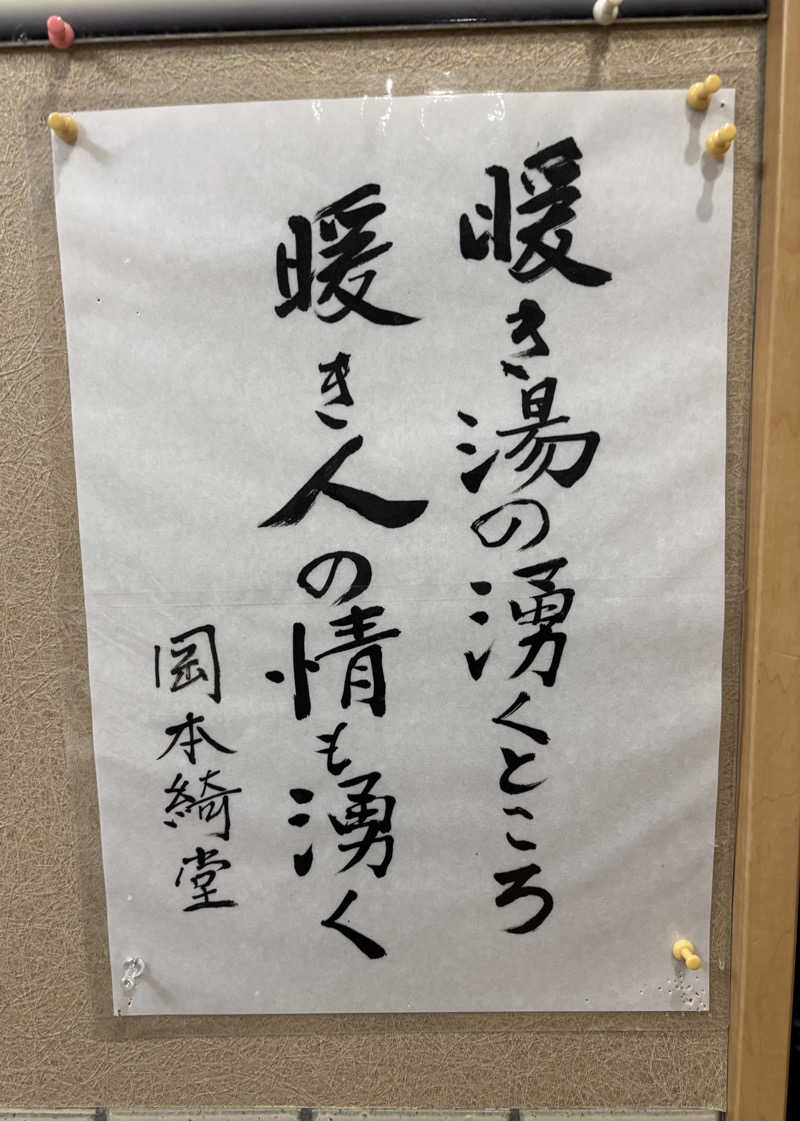 暖き湯の湧くところ
暖き人の情も湧く
岡本綺堂